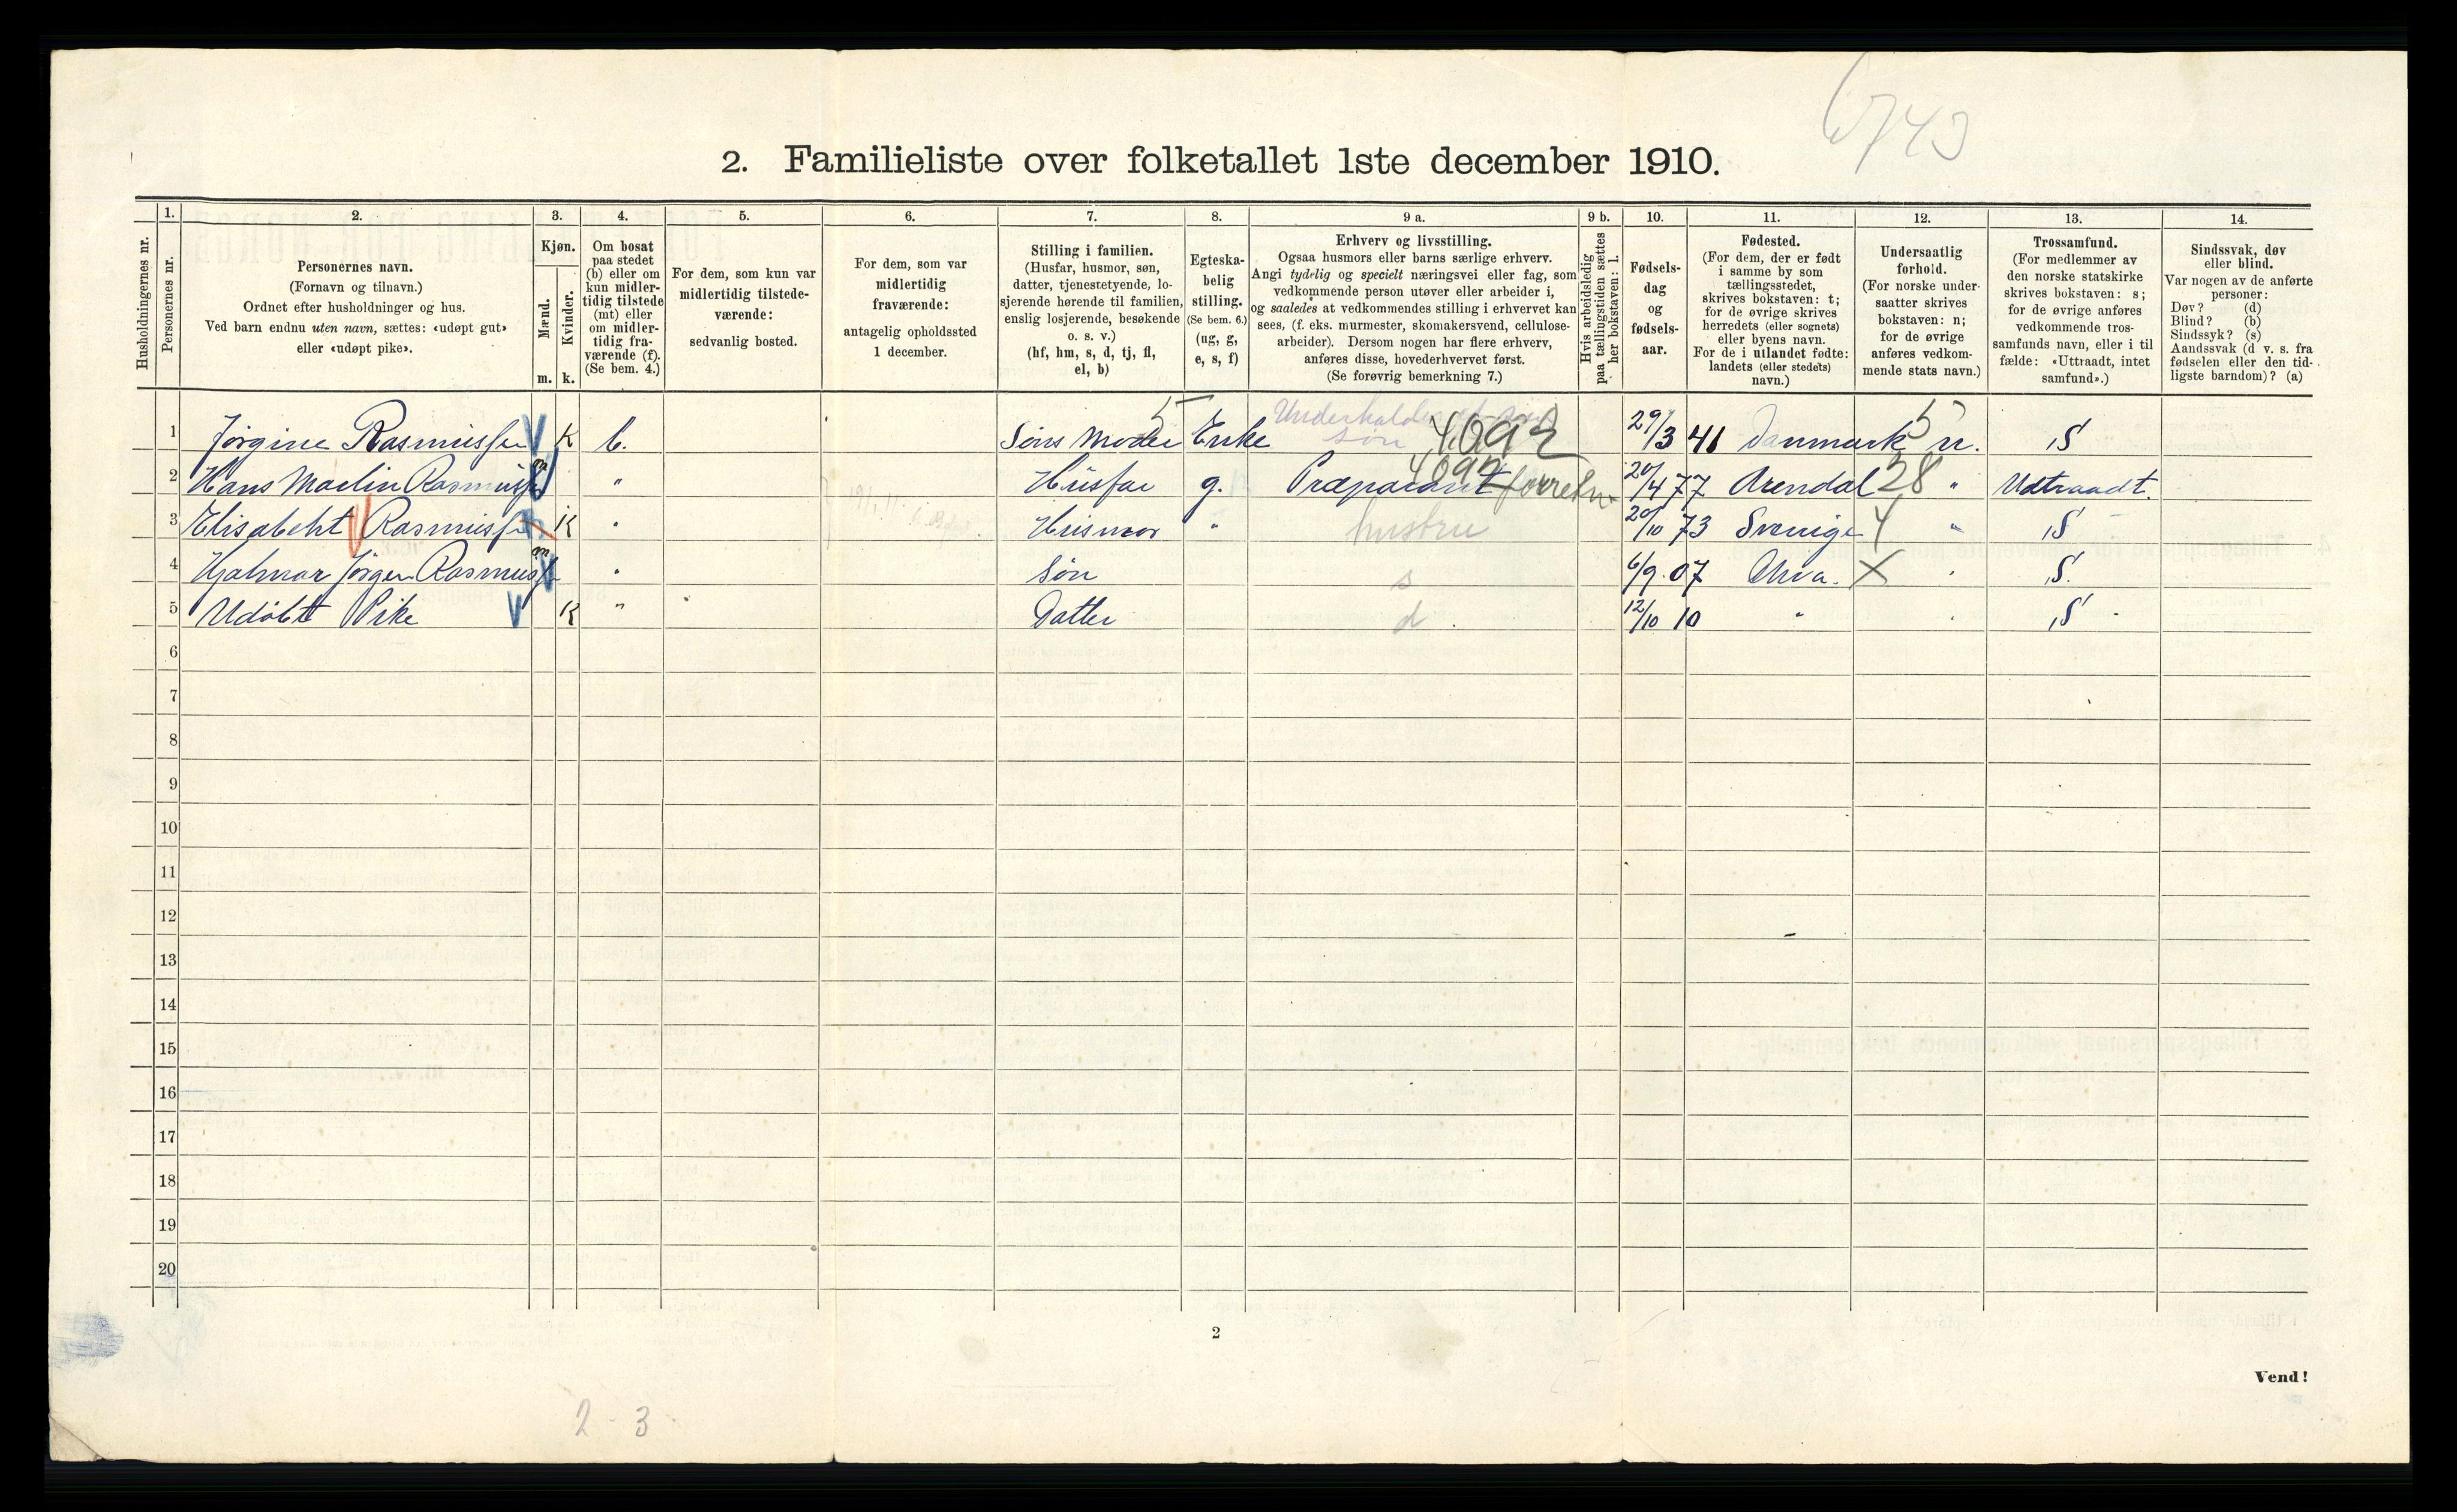 6743
2. Familieliste over folketallet 1ste december 1910.
1. 2. 3. 4. 5. 6. 7. 8. 9 a. 9 b. 10. 11. 12. 13. 14.
Husholdningernes nr.
Personernes nr.
Personernes navn.
(Fornavn og tilnavn.)
Ordnet efter husholdninger og hus.
Ved barn endnu uten navn, sættes: «udøpt gut»
eller «udøpt pike».
Kjøn.
Mænd.
Kvinder.
m. k.
Om bosat
paa stedet
(b) eller om
kun midler-
tidig tilstede
(mt) eller
om midler-
tidig fra-
værende (f).
(Se bem. 4.)
For dem, som kun var
midlertidig tilstede-
værende:
sedvanlig bosted.
For dem, som var
midlertidig
fraværende:
antagelig opholdssted
1 december.
Stilling i familien.
(Husfar, husmor, søn,
datter, tjenestetyende, lo-
sjerende hørende til familien,
enslig losjerende, besøkende
o. s. v.)
(hf, hm, s, d, tj, fl,
el, b)
Egteska-
belig
stilling.
(Se bem. 6.)
(ug, g,
e, s, f)
Erhverv og livsstilling.
Ogsaa husmors eller barns særlige erhverv.
Angi tydelig og specielt næringsvei eller fag, som
vedkommende person utøver eller arbeider i,
og saaledes at vedkommendes stilling i erhvervet kan
sees, (f. eks. murmester, skomakersvend, cellulose-
arbeider). Dersom nogen har flere erhverv,
anføres disse, hovederhvervet først.
(Se forøvrig bemerkning 7.)
Hvis arbeidsledig
paa tællingstiden sættes
her bokstaven: l.
Fødsels-
dag
og
fødsels-
aar.
Fødested.
(For dem, der er født
i samme by som
tællingsstedet,
skrives bokstaven: t;
for de øvrige skrives
herredets (eller sognets)
eller byens navn.
For de i utlandet fødte:
landets (eller stedets)
navn.)
Undersaatlig
forhold.
(For norske under-
saatter skrives
bokstaven: n;
for de øvrige
anføres vedkom-
mende stats navn.)
Trossamfund.
(For medlemmer av
den norske statskirke
skrives bokstaven: s;
for de øvrige anføres
vedkommende tros-
samfunds navn, eller i til
fælde: «Uttraadt, intet
samfund».)
Sindssvak, døv
eller blind.
Var nogen av de anførte
personer:
Døv? (d)
Blind? (b)
Sindssyk? (s)
Aandssvak (d v. s. fra
fødselen eller den tid-
ligste barndom)? (a)
1 Jørgine Rasmussen K b. Søns Moder Enke søn 4092 29/3 41 Danmark 5 n. S
2 Hans Martin Rasmussen m " Husfar g. Præparant forretn. 4092 20/4 77 Arendal 28 " Udtraadt.
3 Elisabeht Rasmussen K " Husmor " hustru 20/10 73 Sverige 4 " S
4 Hjalmar Jørgen Rasmussen m " Søn s 6/9 07 Chra. X " S.
5 Udöbt Pike K " Datter d 12/10 10 " " S
6
7
8
9
10
11
12
13
14
15
16
17
18
19
20
2
Vend!
2 - 3